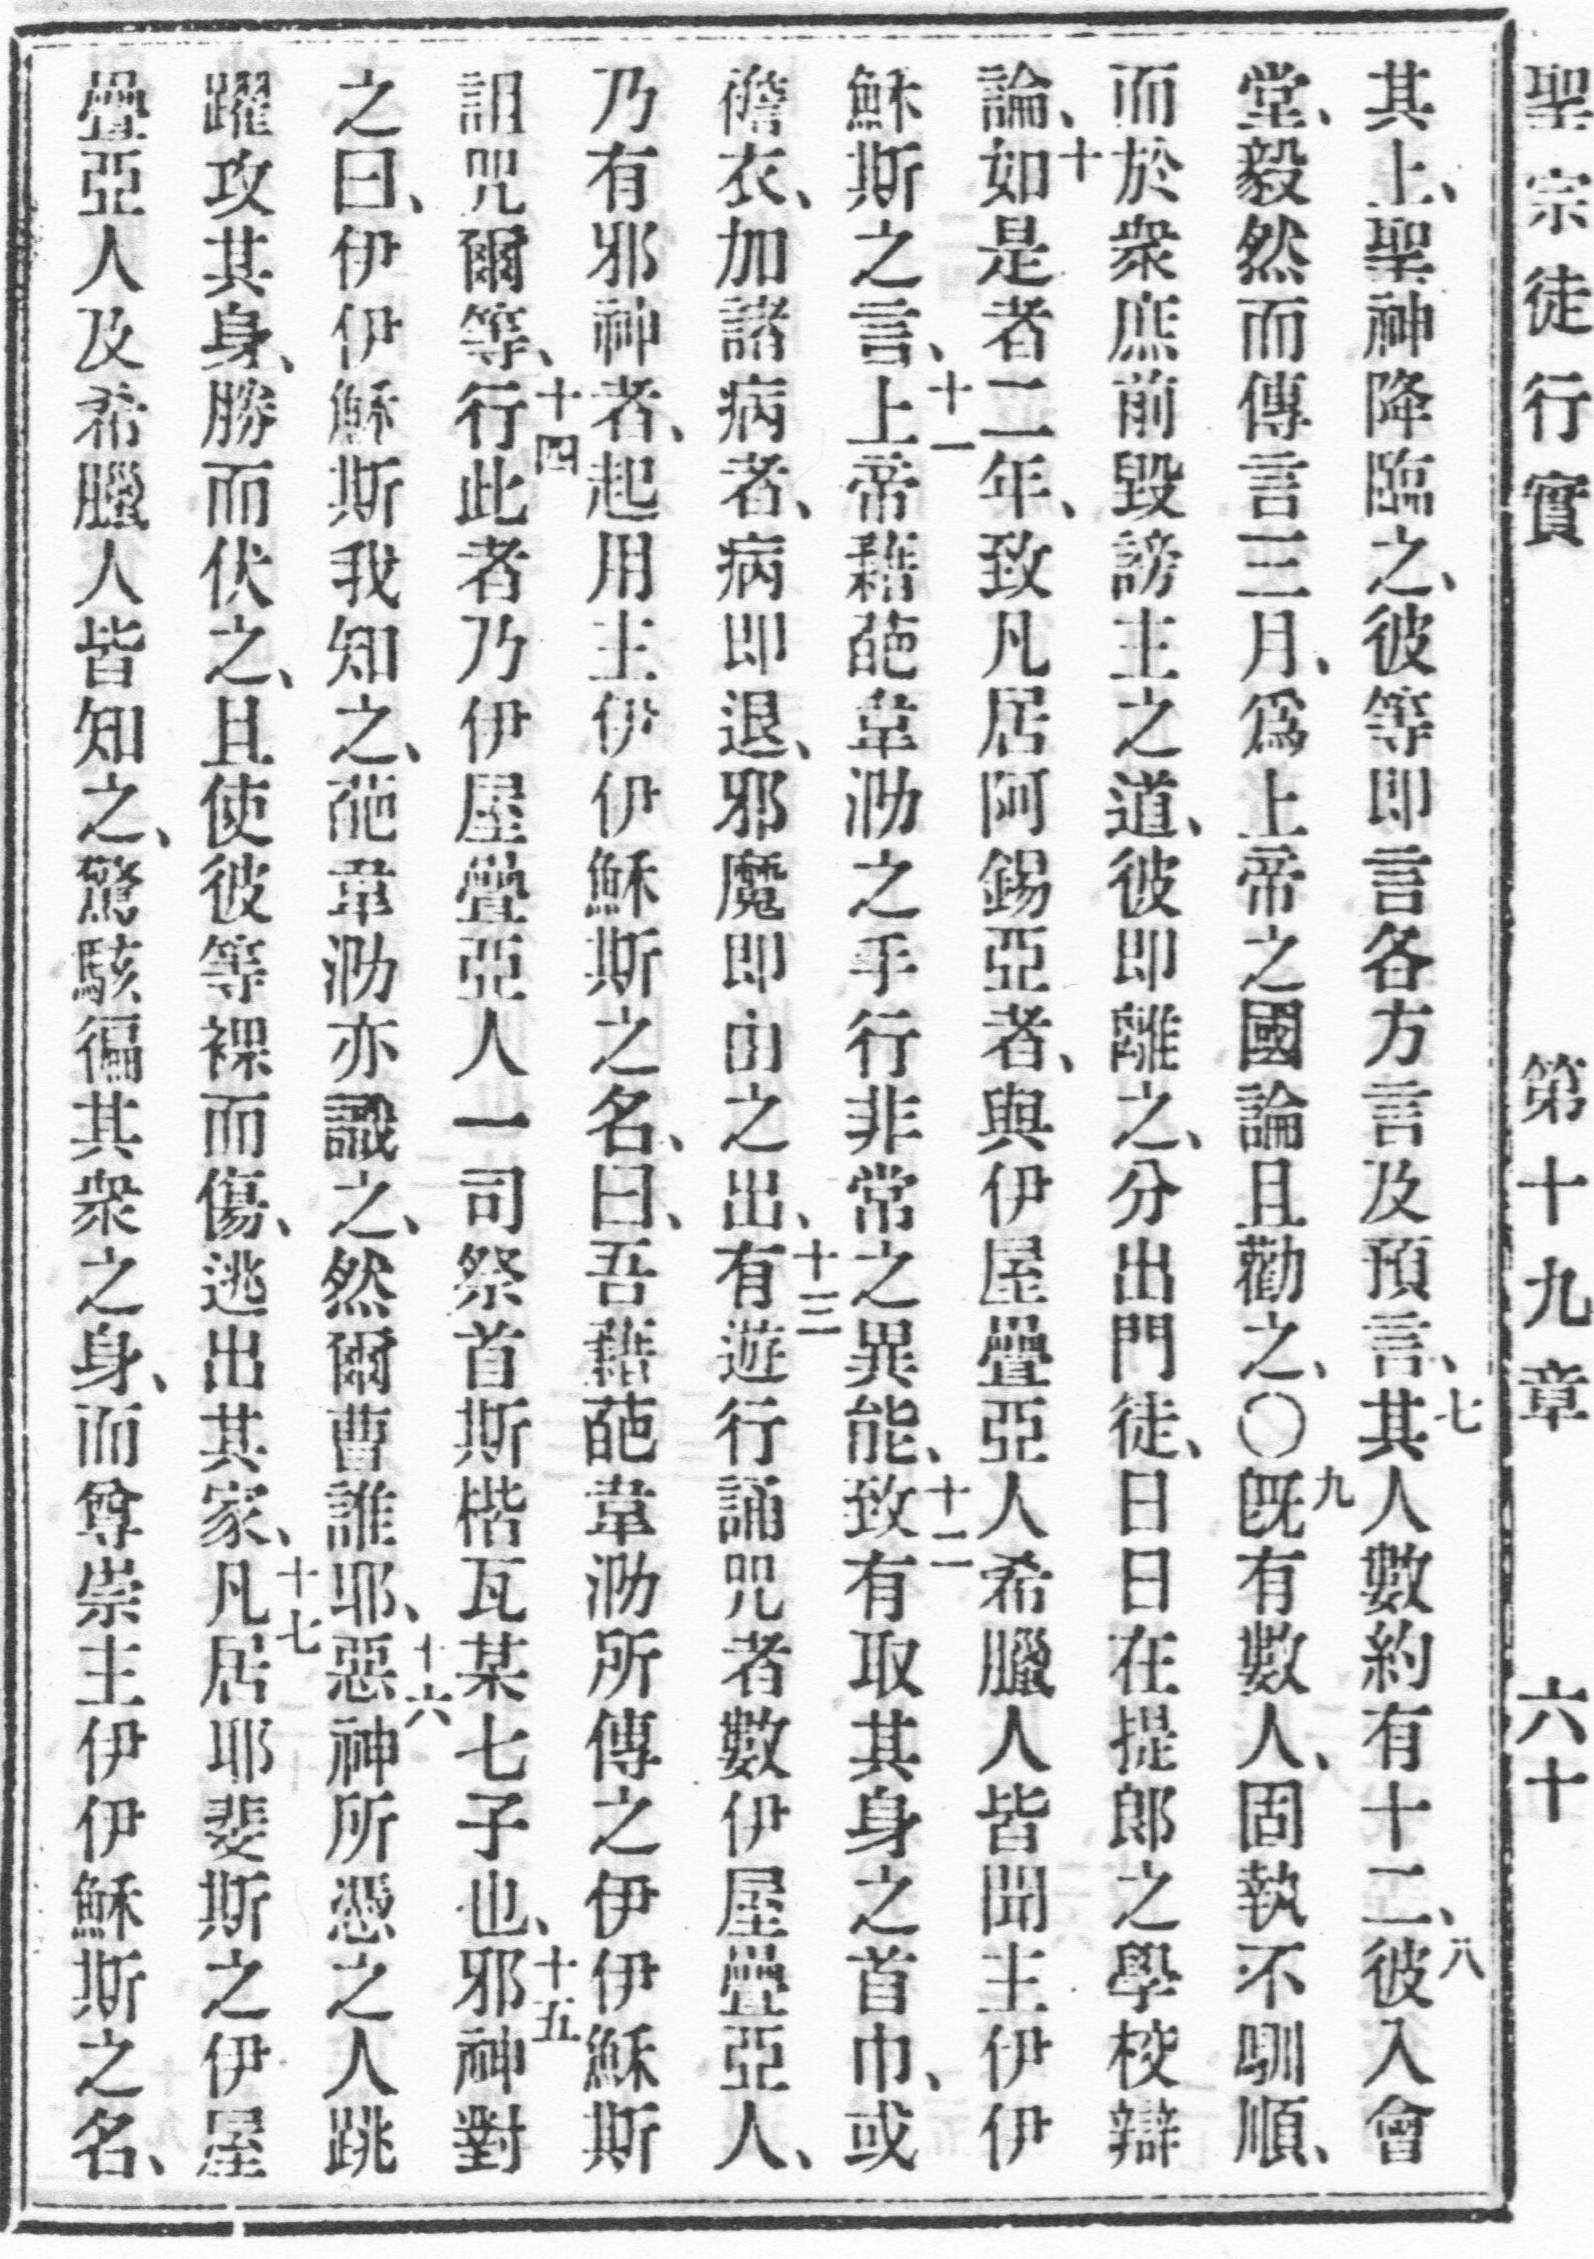 聖宗徒行實 第十九章 六十
其上、聖神降臨之、彼等即言各方言及預言、七其人數約有十二、八彼入會
堂、毅然而傳言三月、爲上帝之國論且勸之、〇九旣有數人、固執不馴順、
而於衆庶前毀謗主之道、彼即離之、分出門徒、日日在提郎之學校辯
論、十如是者二年、致凡居阿錫亞者、與伊屋疊亞人希臘人皆聞主伊伊
穌斯之言、十一上帝藉葩韋泐之手行非常之異能、十二致有取其身之首巾、或
襜衣、加諸病者、病即退、邪魔即由之出、十三有遊行誦咒者數伊屋疊亞人、
乃有邪神者、起用主伊伊穌斯之名、曰、吾藉葩韋泐所傳之伊伊穌斯
詛咒爾等、十四行此者乃伊屋疊亞人一司祭首斯楷瓦某七子也、十五邪神對
之曰、伊伊穌斯我知之、葩韋泐亦識之、然爾曹誰耶、十六惡神所憑之人跳
躍攻其身、勝而伏之、且使彼等裸而傷、逃出其家、十七凡居耶斐斯之伊屋
疊亞人及希臘人皆知之、驚駭徧其衆之身、而尊崇主伊伊穌斯之名、